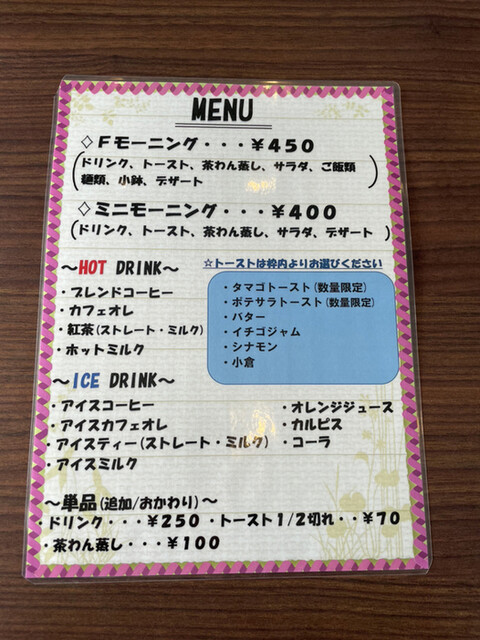 MENU
◇Fモーニング・・・¥450
(ドリンク、トースト、茶わん蒸し、サラダ、ご飯類
麺類、小鉢、デザート)
◇ミニモーニング・・・¥400
(ドリンク、トースト、茶わん蒸し、サラダ、デザート)
～HOT DRINK～
☆トーストは枠内よりお選びください
・ブレンドコーヒー
・カフェオレ
・紅茶(ストレート・ミルク)
・ホットミルク
・タマゴトースト(数量限定)
・ポテサラトースト(数量限定)
・バター
・イチゴジャム
・シナモン
・小倉
～ICE DRINK～
・アイスコーヒー
・アイスカフェオレ
・アイスティー(ストレート・ミルク)
・アイスミルク
・オレンジジュース
・カルピス
・コーラ
～単品(追加/おかわり)～
・ドリンク・・・¥250 ・トースト1/2切れ・・¥70
・茶わん蒸し・・・¥100